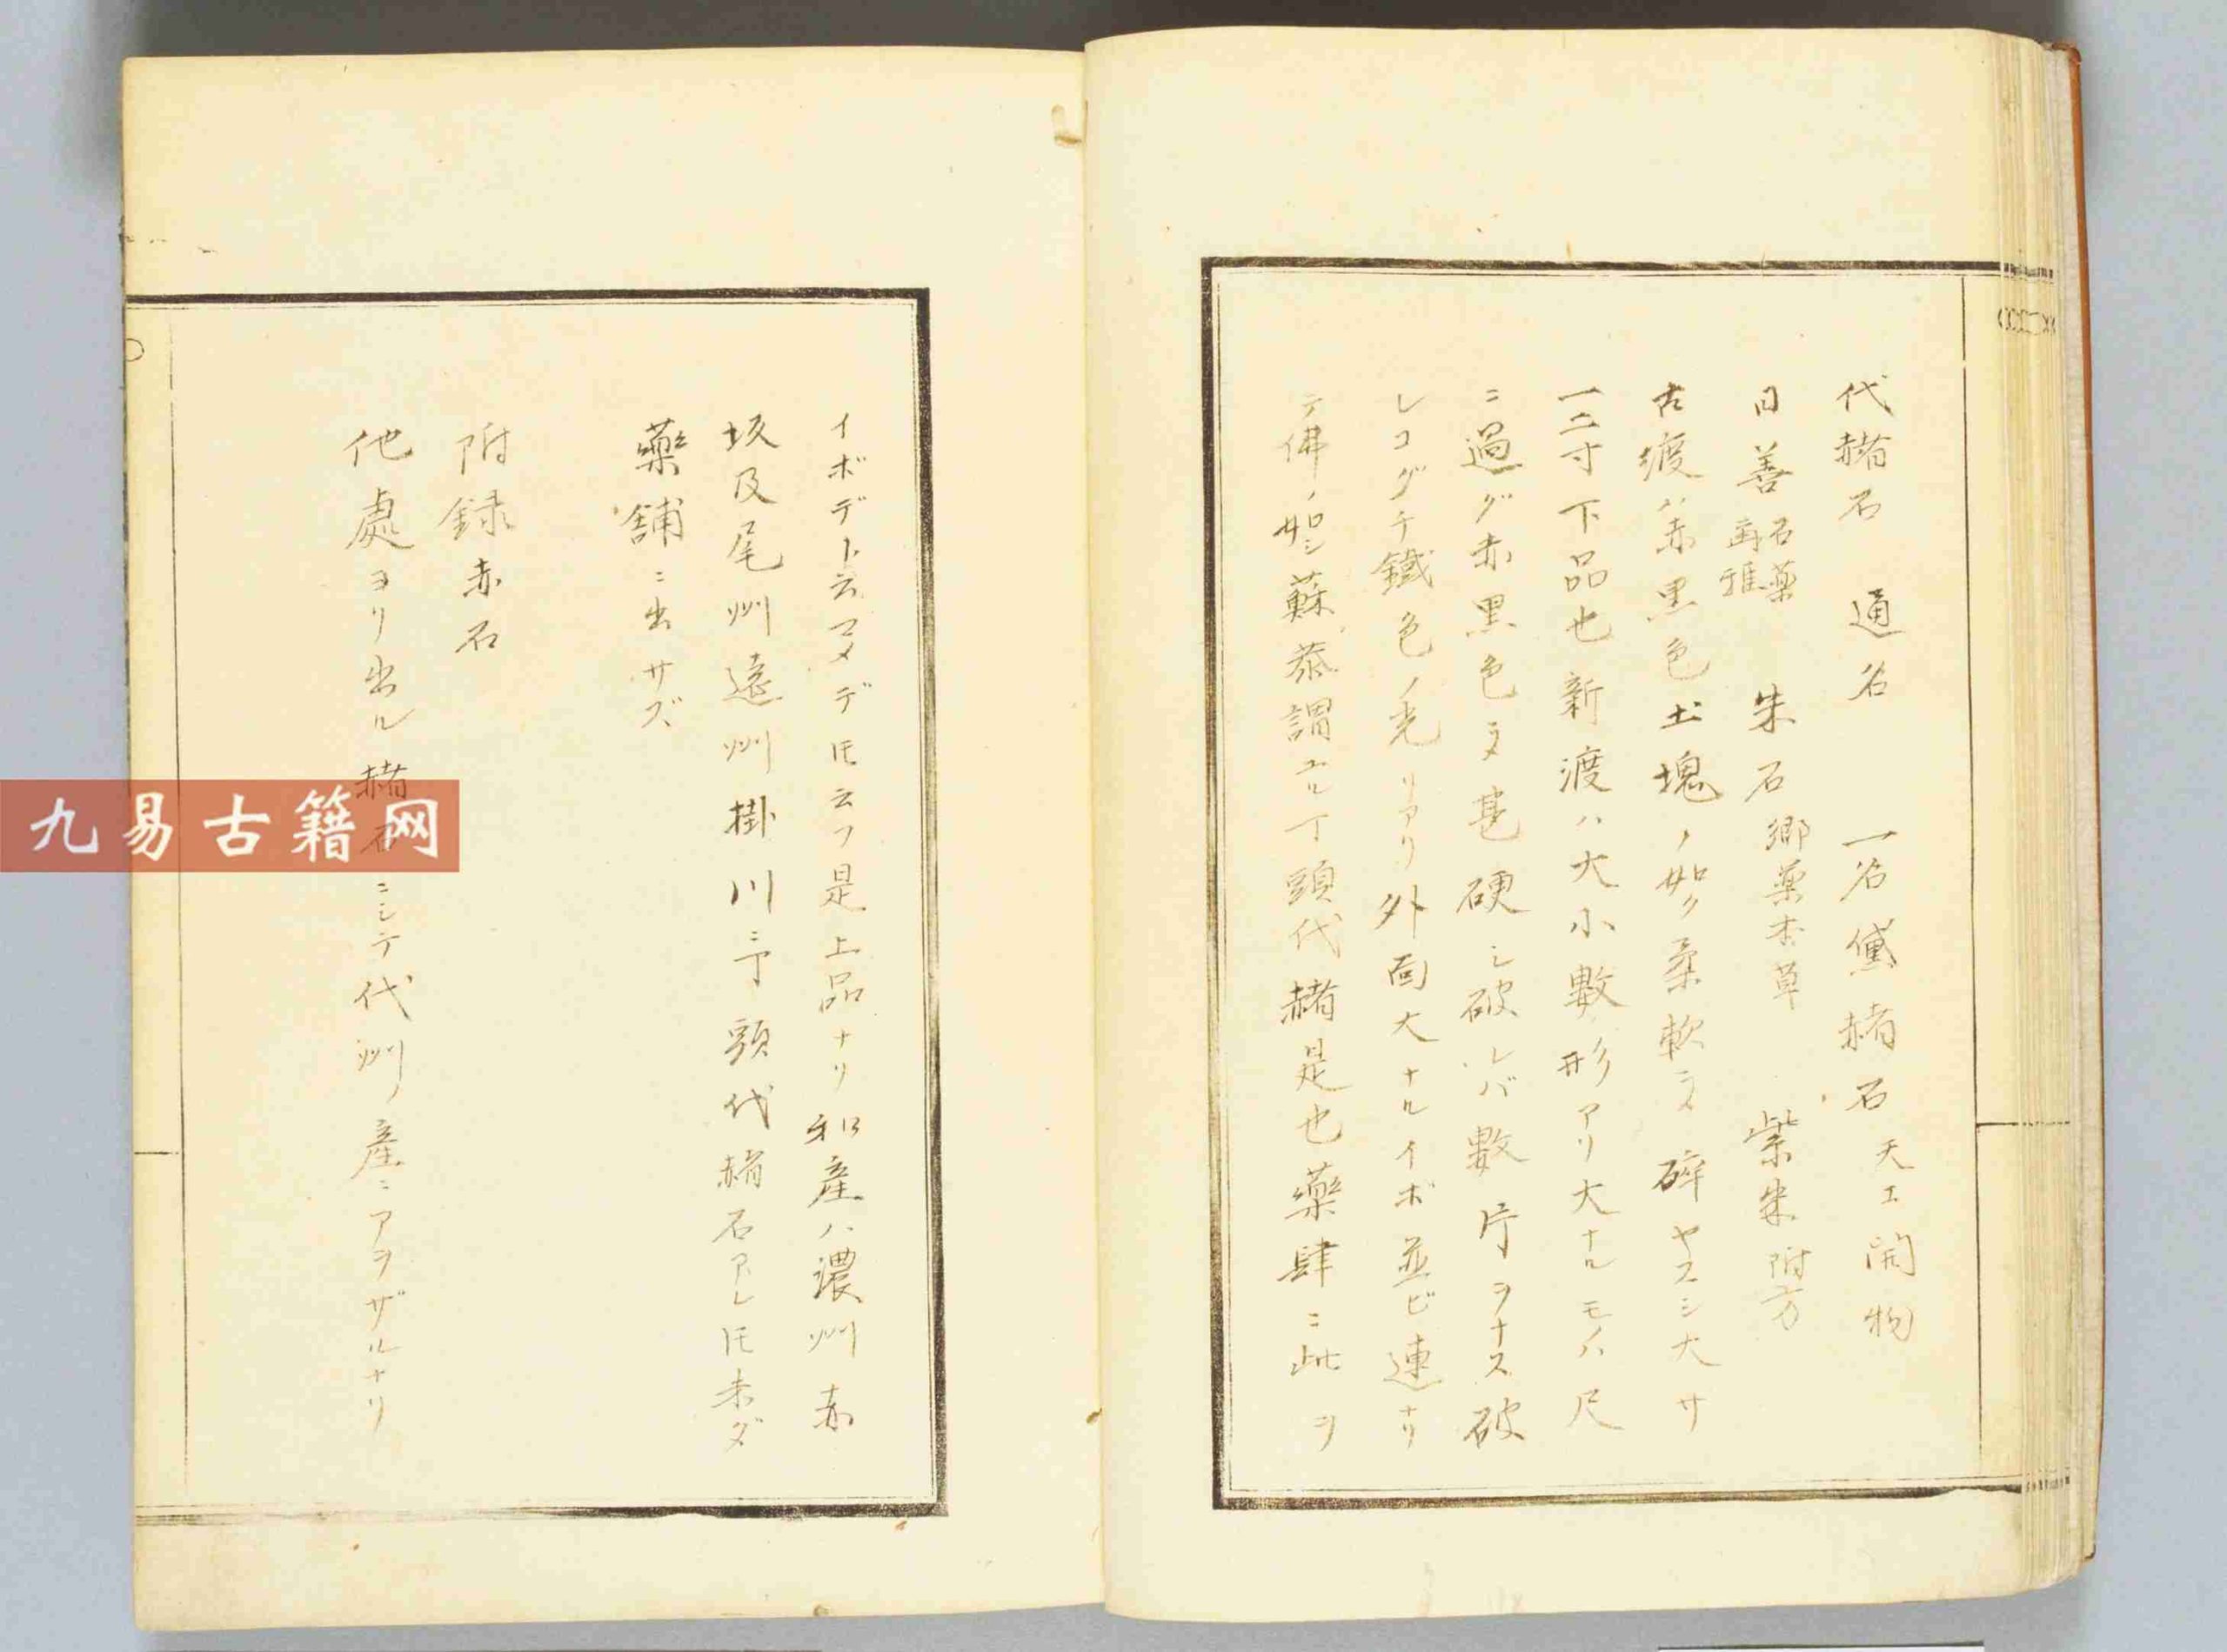 代赭石 通名 一名黛赭石 天工開物
血師
朱石 郷薬本草 紫朱 附方
古渡ハ赤黒色土塊ノ如ク柔軟ニ〆碎ヤスシ大サ
一二寸下品也新渡ハ大小數形アリ大ナルモノハ尺
ニ過グ赤黒色ニ〆甚硬シ破レバ數片ヲナス破
レコグチ鐵色ノ光リアリ外面大ナルイボ並ビ連ナリ
テ佛ノ如シ蘇恭謂ユル丁頭代赭是也藥肆ニ此ヲ
イボデト云マメデ𪜈云フ是上品ナリ和産ハ濃州赤
坂及尾州遠州掛川ニ丁頭代赭石アレ𪜈未ダ
藥舗ニ出サズ
附録赤石
他處ヨリ出ル赭石ニシテ代州ノ産ニアラザルナリ
九易古籍网